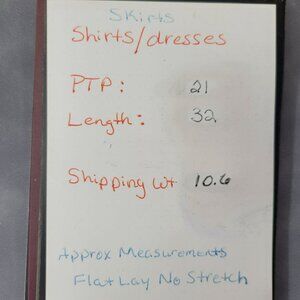 Skirts
Shirts/dresses
PTP: 21
Length: 32
Shipping wt 10.6
Approx Measurements
Flat Lay No Stretch